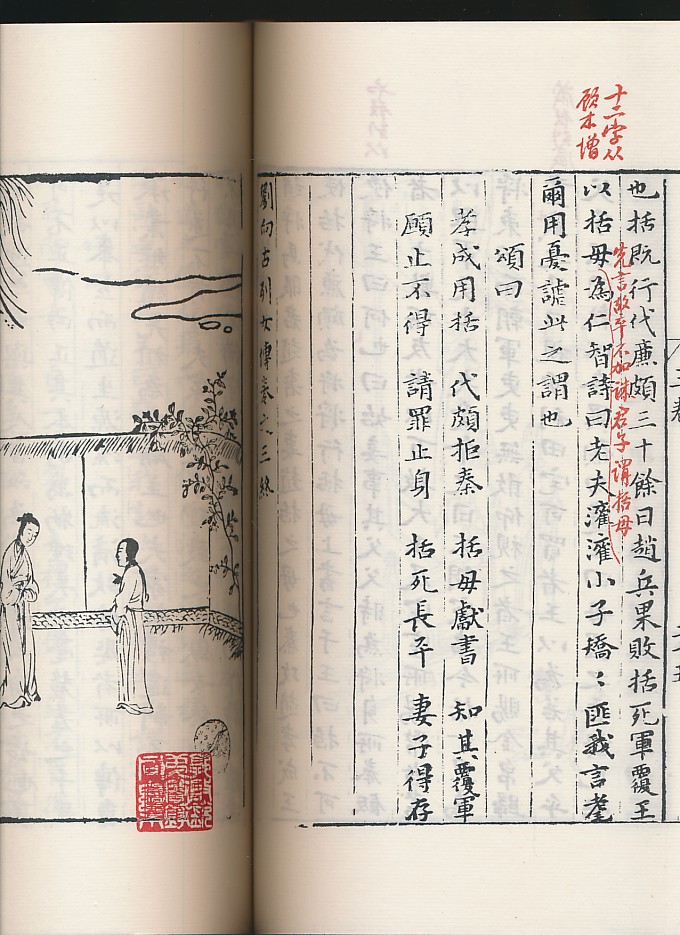 十二字从
顾本增
也括既行代廉頗三十餘日趙兵果敗括死軍覆王
先言故卒不加誅君子謂括母
以括母為仁智詩曰老夫灌灌小子矯〻匪我言耄
爾用憂謔此之謂也
頌曰
孝成用括 代頗拒秦 括母獻書 知其覆軍
願止不得 請罪止身 括死長平 妻子得存
劉向古列女傳卷之三終